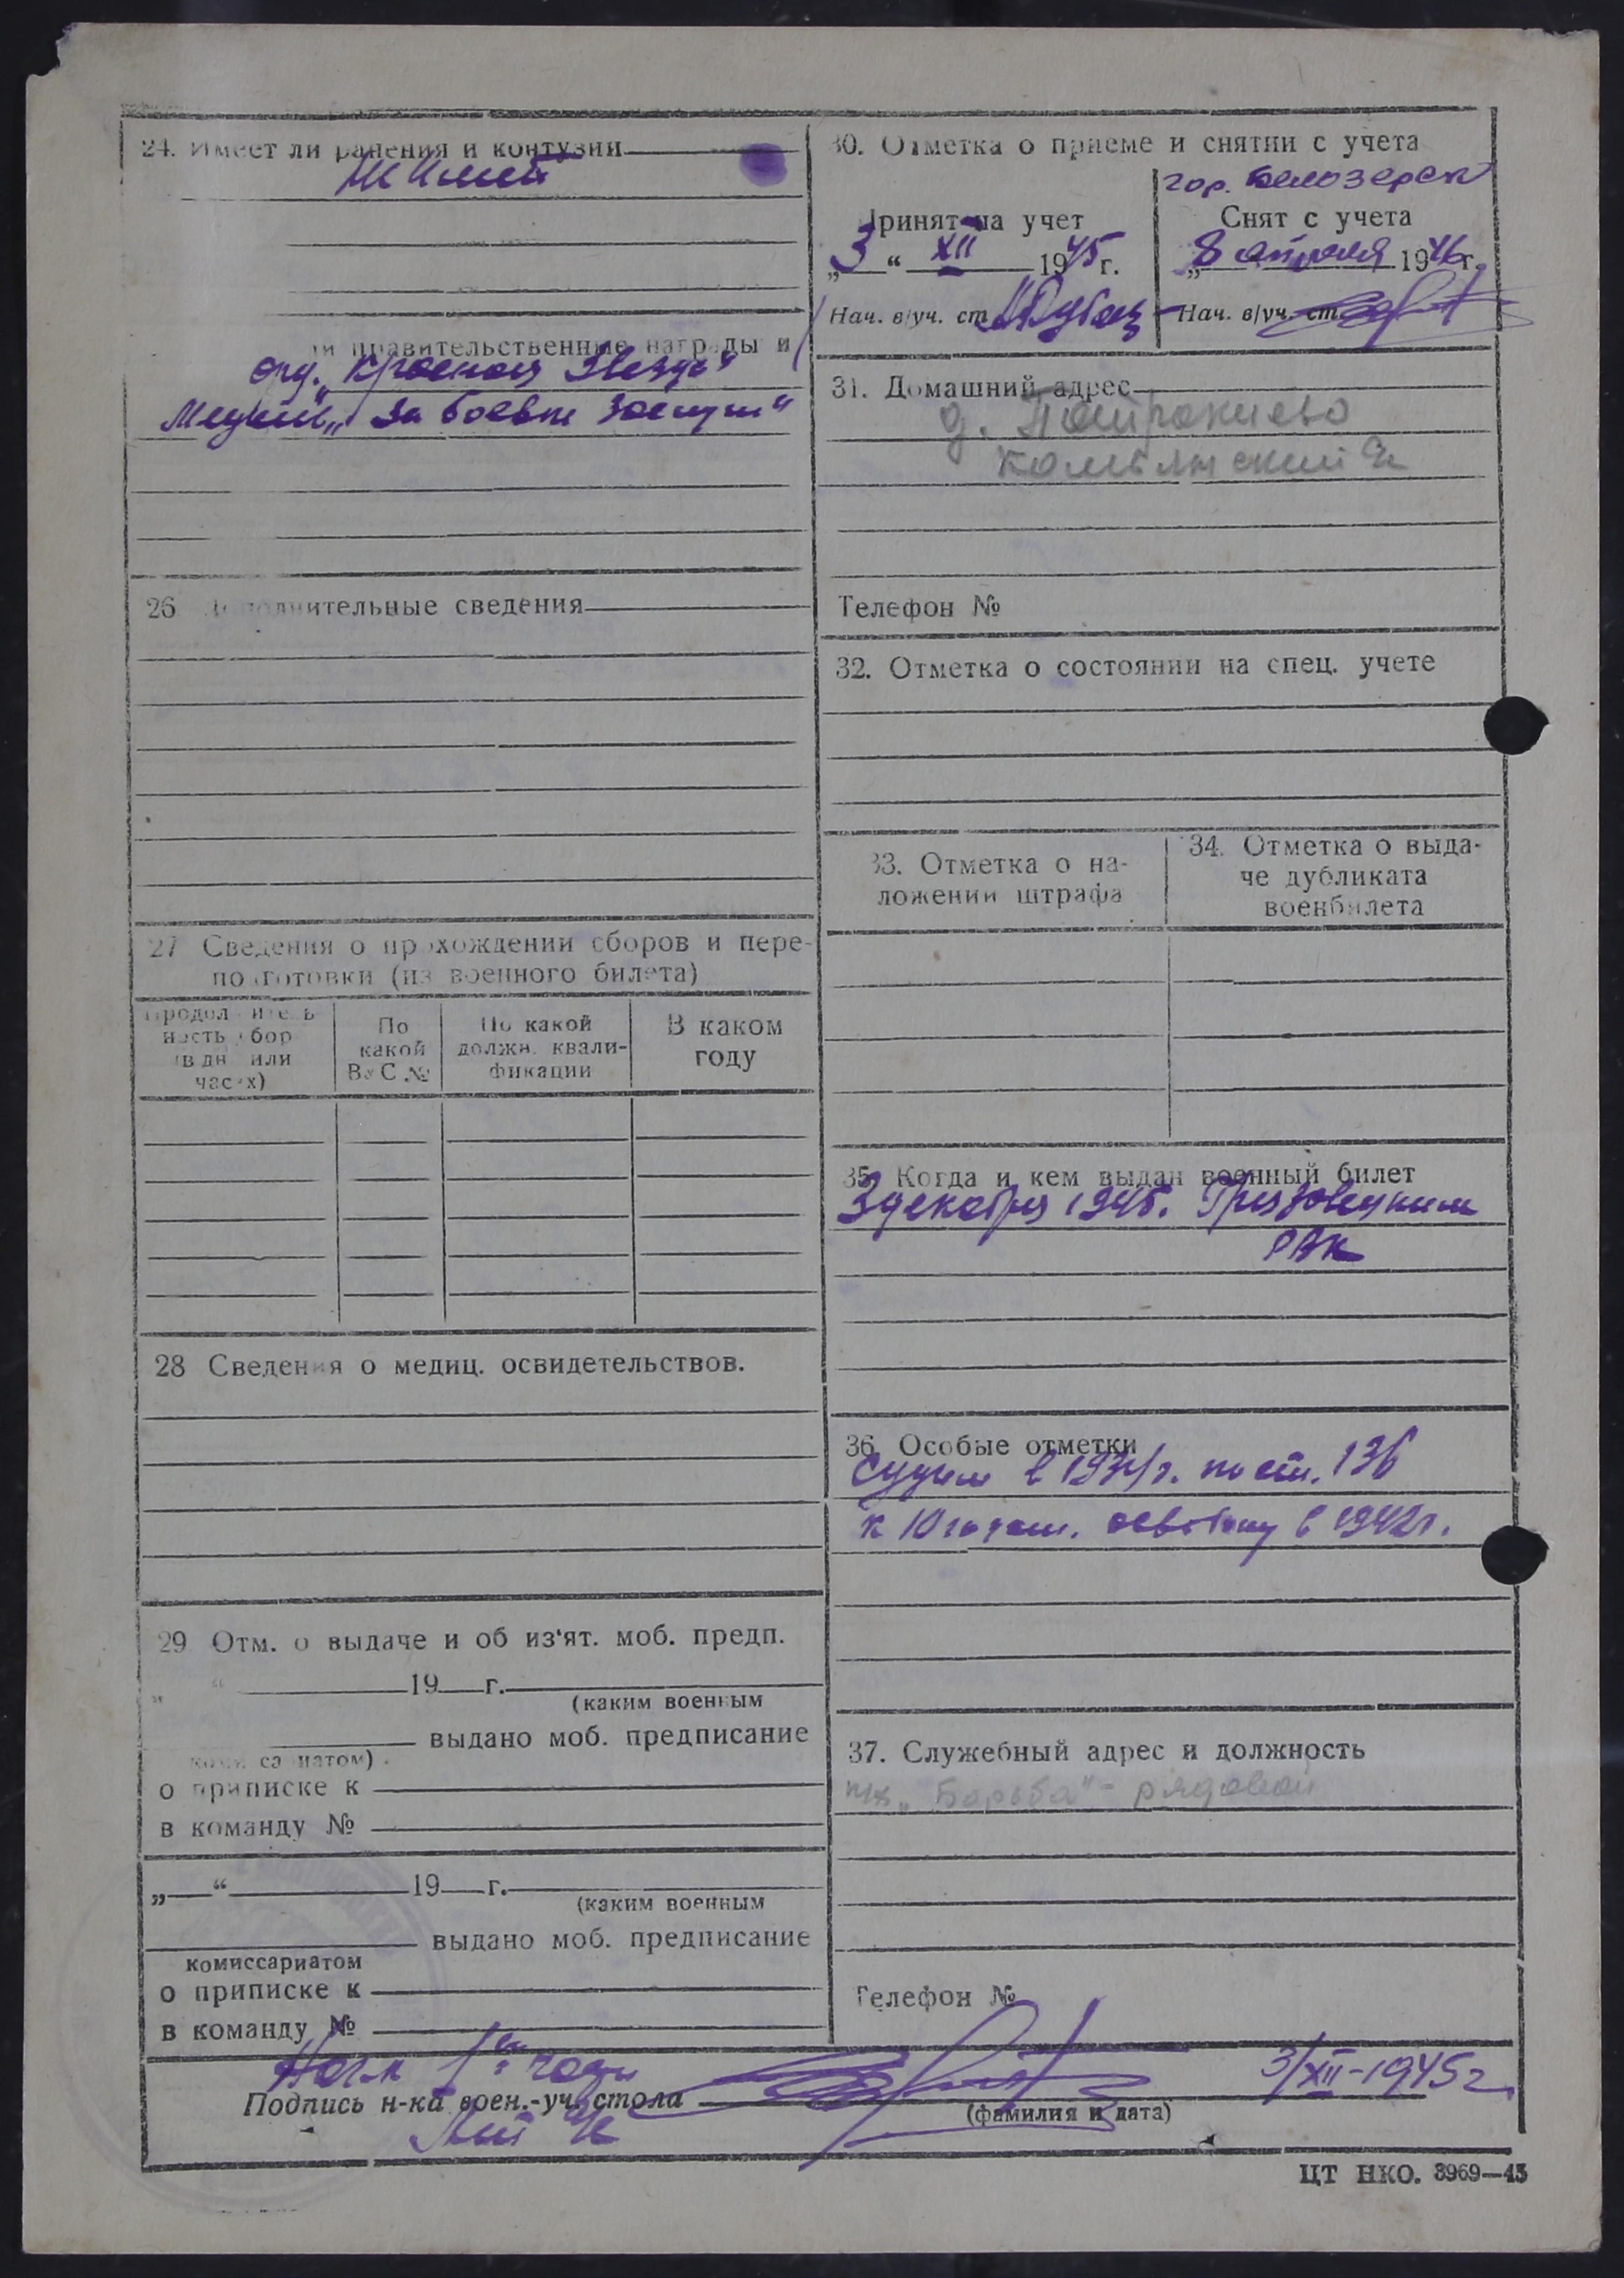 24. Имеет ли ранения и контузии
Не имеет
и правительственные награды и
Орд. „Красная Звезда"
Медаль „За боевые заслуги"
26 Дополнительные сведения
27 Сведения о прохождении сборов и пере-
подготовки (из военного билета)
Продолжитель-
ность сбор
(в дн или
часах)
По
какой
ВУС №
По какой
должн. квали-
фикации
В каком
году
28 Сведения о медиц. освидетельствов.
29 Отм. о выдаче и об из'ят. моб. предп.
" " 19 г.
(каким военным
выдано моб. предписание
комиссариатом)
о приписке к
в команду №
„ “ 19 г.
(каким военным
выдано моб. предписание
комиссариатом
о приписке к
в команду №
30. Отметка о приеме и снятии с учета
гор. Белозерск
Принят на учет
„3“ XII 1945 г.
Нач. в/уч. ст.
Снят с учета
„8 апреля 1946 г.
Нач. в/уч. ст.
31. Домашний адрес
д.
Телефон №
32. Отметка о состоянии на спец. учете
33. Отметка о на-
ложении штрафа
34. Отметка о выда-
че дубликата
военбилета
35. Когда и кем выдан военный билет
3 декабря 1945. Грязовецким
РВК
36. Особые отметки
Судим в 1934 г. по ст. 136
к 10 годам. освобожд в 1942 г.
37. Служебный адрес и должность
„Борьба" - рядовой
Телефон №
Нач 1й части
Подпись н-ка воен.-уч. стола
3/XII-1945 г.
(фамилия и дата)
ЦТ НКО. 3969—45